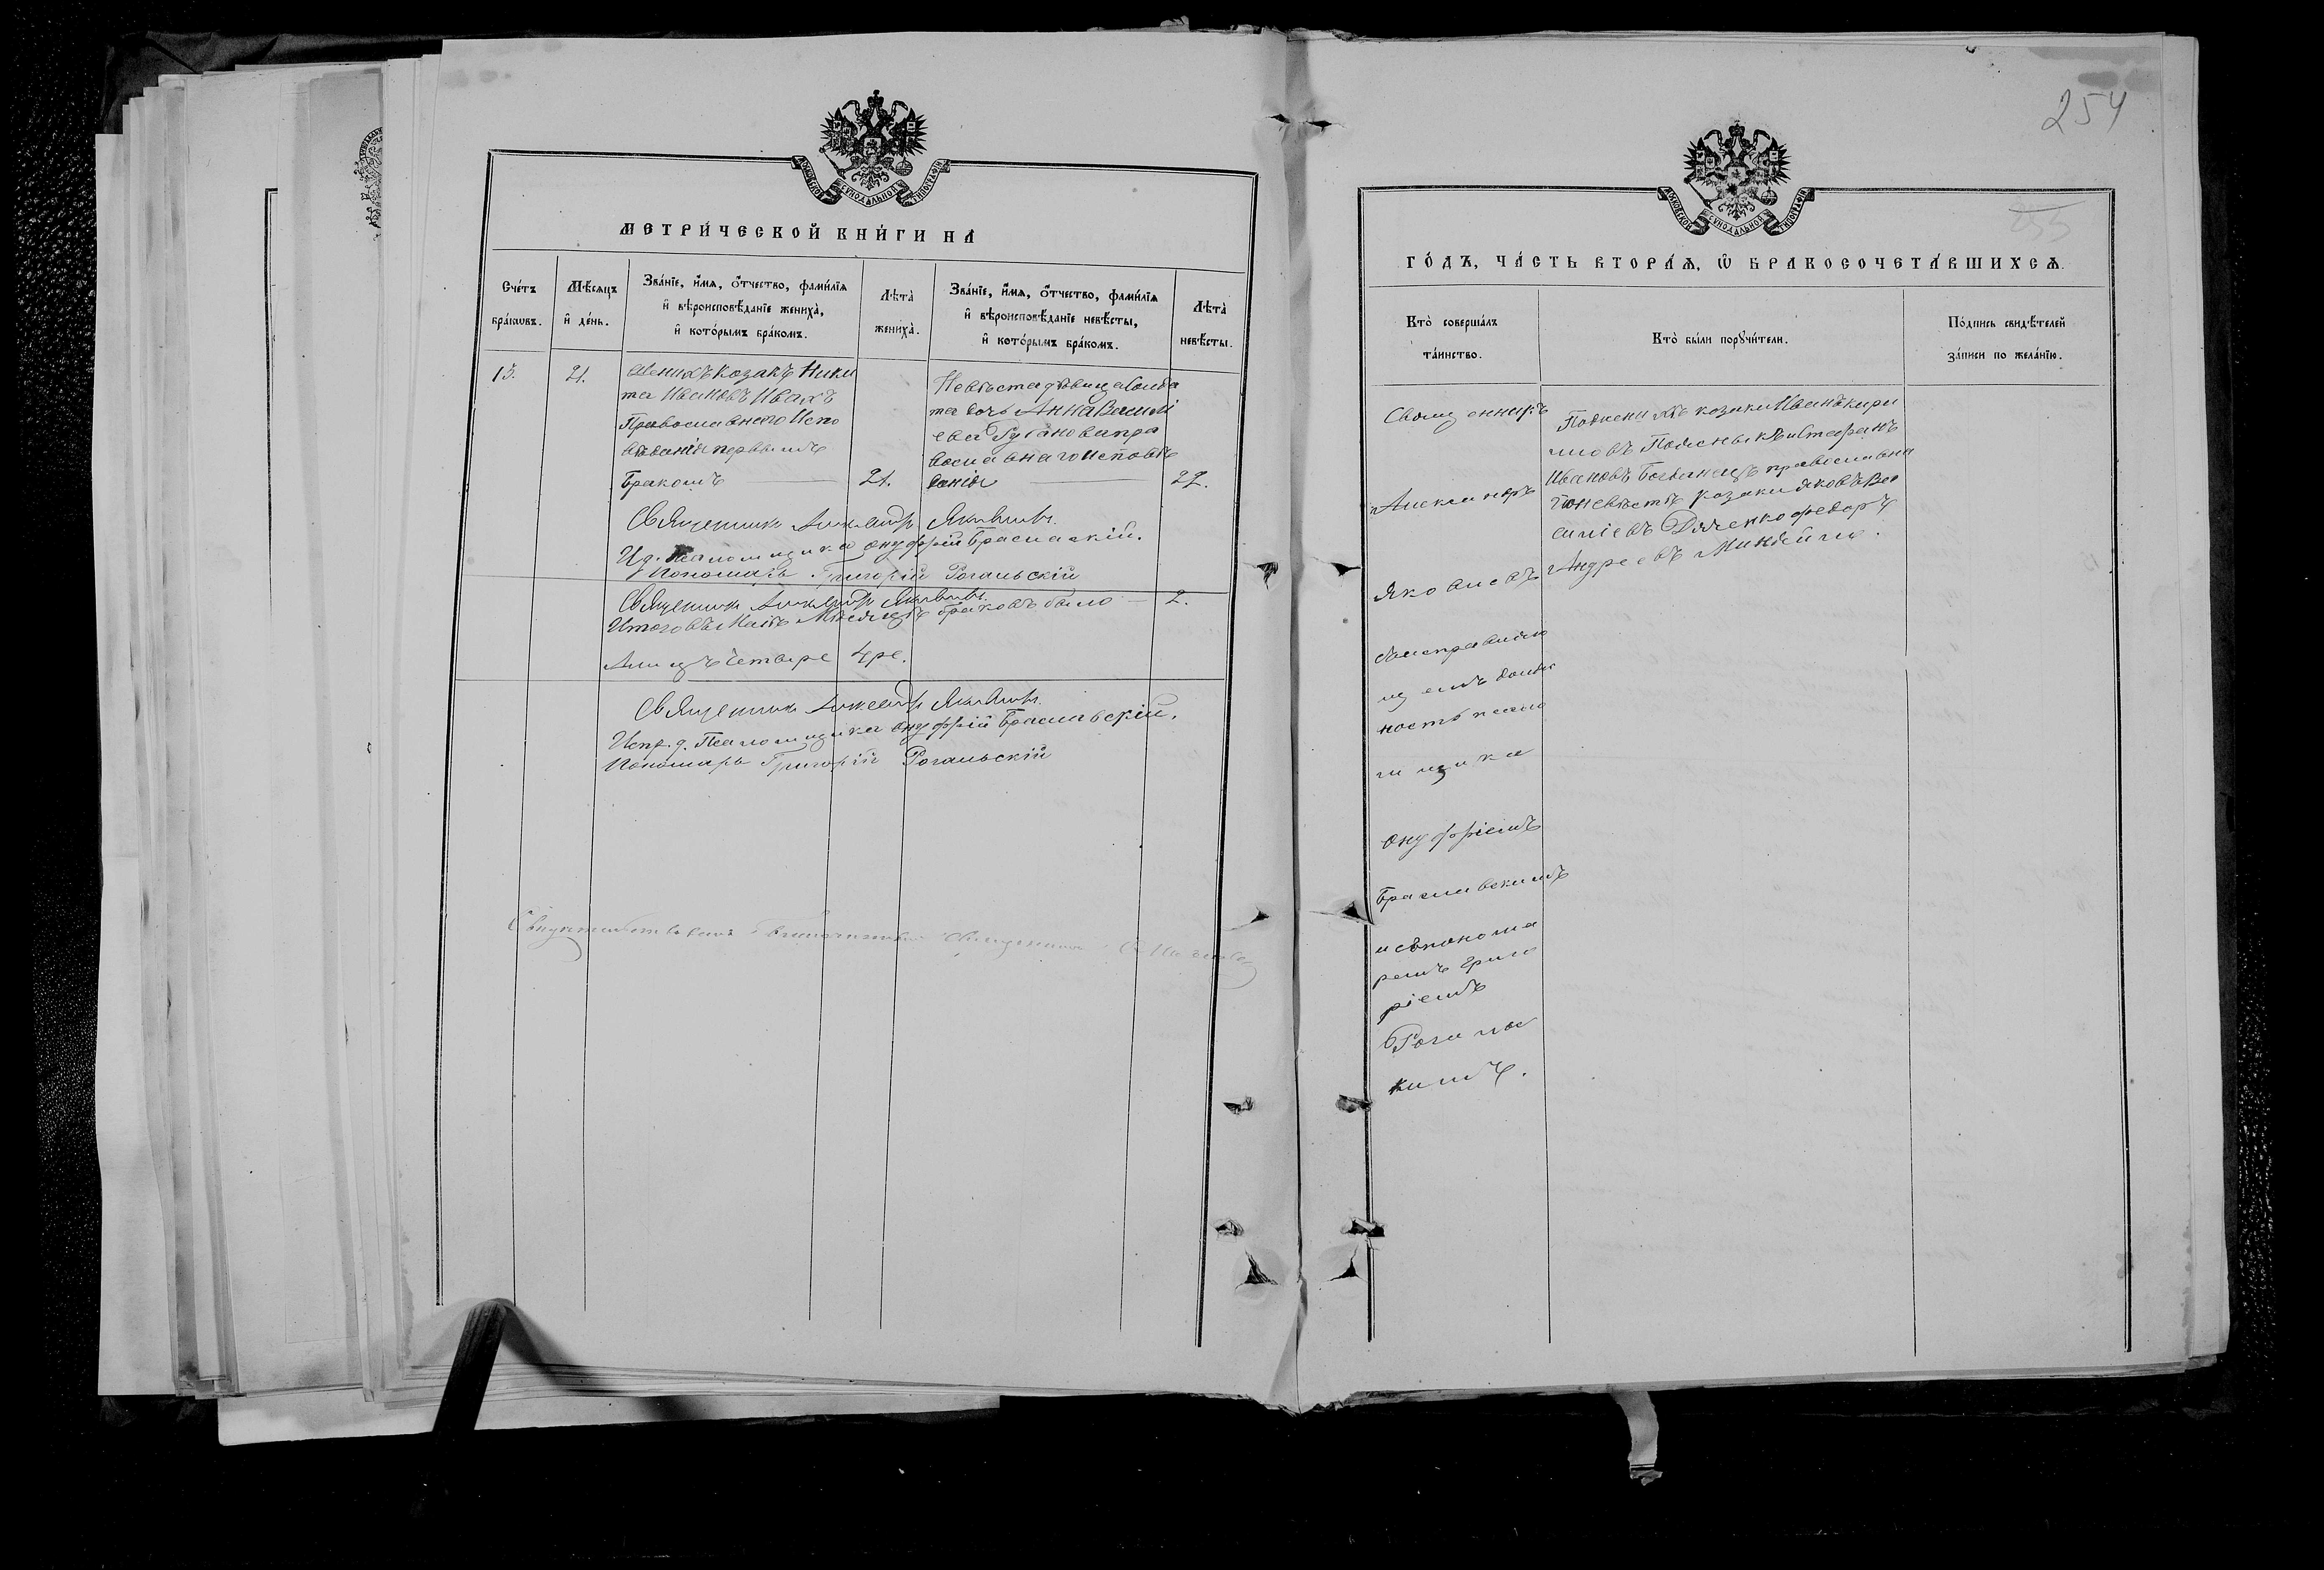 254
МОСКОВСКОЙ СУНОДАЛЬНОЙ ТИПОГРАФІИ
МЕТРИ́ЧЕСКОЙ КНИ́ГИ НА
Сче́тъ бра́кѡвъ.
Мѣ́сяцъ и҆ де́нь.
Зва́нїе, и҆́мѧ, ѻ҆́тчество, фами́лїѧ
и҆ вѣроисповѣ́данїе жениха̀,
и҆ кото́рымъ бра́комъ.
Лѣта̀ жениха̀.
Зва́нїе, и҆́мѧ, ѻ҆́тчество, фами́лїѧ
и҆ вѣроисповѣ́данїе невѣ́сты,
и҆ кото́рымъ бра́комъ.
Лѣта̀ невѣ́сты.
13.
21.
Женихъ козакъ Ники
та Ивановъ Ивахъ
Православнаго Испо
вѣданія первымъ
Бракомъ
21.
Невѣста дѣвица Солда
та дочь Анна Василі
ева Гуганова пра
вославнаго исповѣ
данія
22.
Священникъ Александръ Яковлевъ.
И. д. Псаломщика Онуфрій Браславскій.
Пономарь Григорій Рогальскій
Священникъ Александръ Яковлевъ.
Итого въ Маіѣ Мѣсяцѣ браковъ было — 2.
Лицъ Четыре 4ре.
Священникъ Александръ Яковлевъ.
Испр. д. Псаломщика Онуфрій Браславскій.
Пономарь Григорій Рогальскій
МОСКОВСКОЙ СУНОДАЛЬНОЙ ТИПОГРАФІИ
ГО́ДЪ, ЧА́СТЬ ВТОРА́Я, Ѡ҆ БРАКОСОЧЕТА́ВШИХСЯ.
Кто̀ соверша́лъ
та́инство.
Кто̀ бы́ли порꙋчи́тели.
По́дпись свидѣ́телей
за́писи по жела́нїю.
Священникъ
Александръ
Яковлевъ
съ исправляю
щемъ долж
ность псало
мщика
Онуфріемъ
Браславскимъ
и съ понома
ремъ Григо
ріемъ
Рогальс
кимъ.
По женихѣ козаки Иванъ Кири
ловъ и Стефанъ
Ивановъ Богданецъ православна
го невѣстѣ козаки Яковъ Ва
силіевъ Дяченко Федоръ
Андреевъ